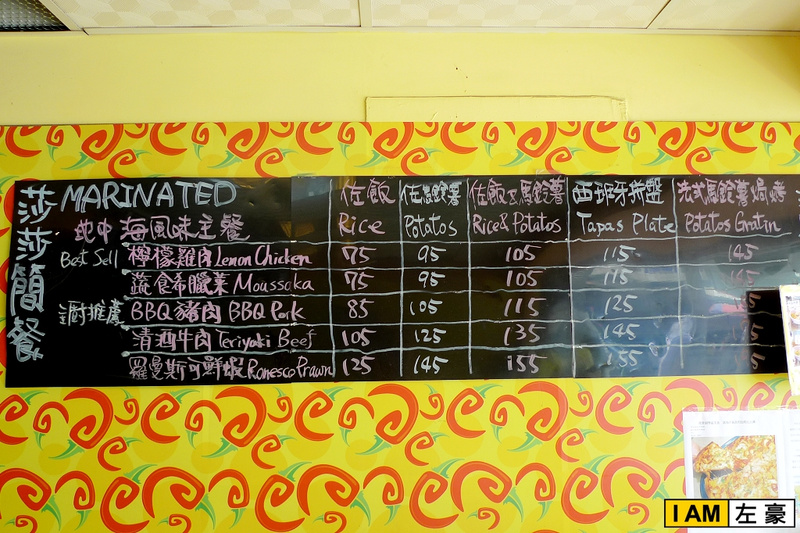 莎莎簡餐
MARINATED 佐飯 佐馬鈴薯 佐飯&馬鈴薯 西班牙拼盤 法式馬鈴薯焗烤
地中海風味主餐 Rice Potatos Rice & Potatos Tapas Plate Potatos Gratin
Best Sell 檸檬雞肉 Lemon Chicken 75 95 105 115 145
蔬食希臘菜 Moussaka 75 95 105 115 145
主廚推薦 BBQ豬肉 BBQ Pork 85 105 115 125
清酒牛肉 Teriyaki Beef 105 125 135 145
羅曼斯可鮮蝦 Romesco Prawn 125 145 155 155
I AM 左豪